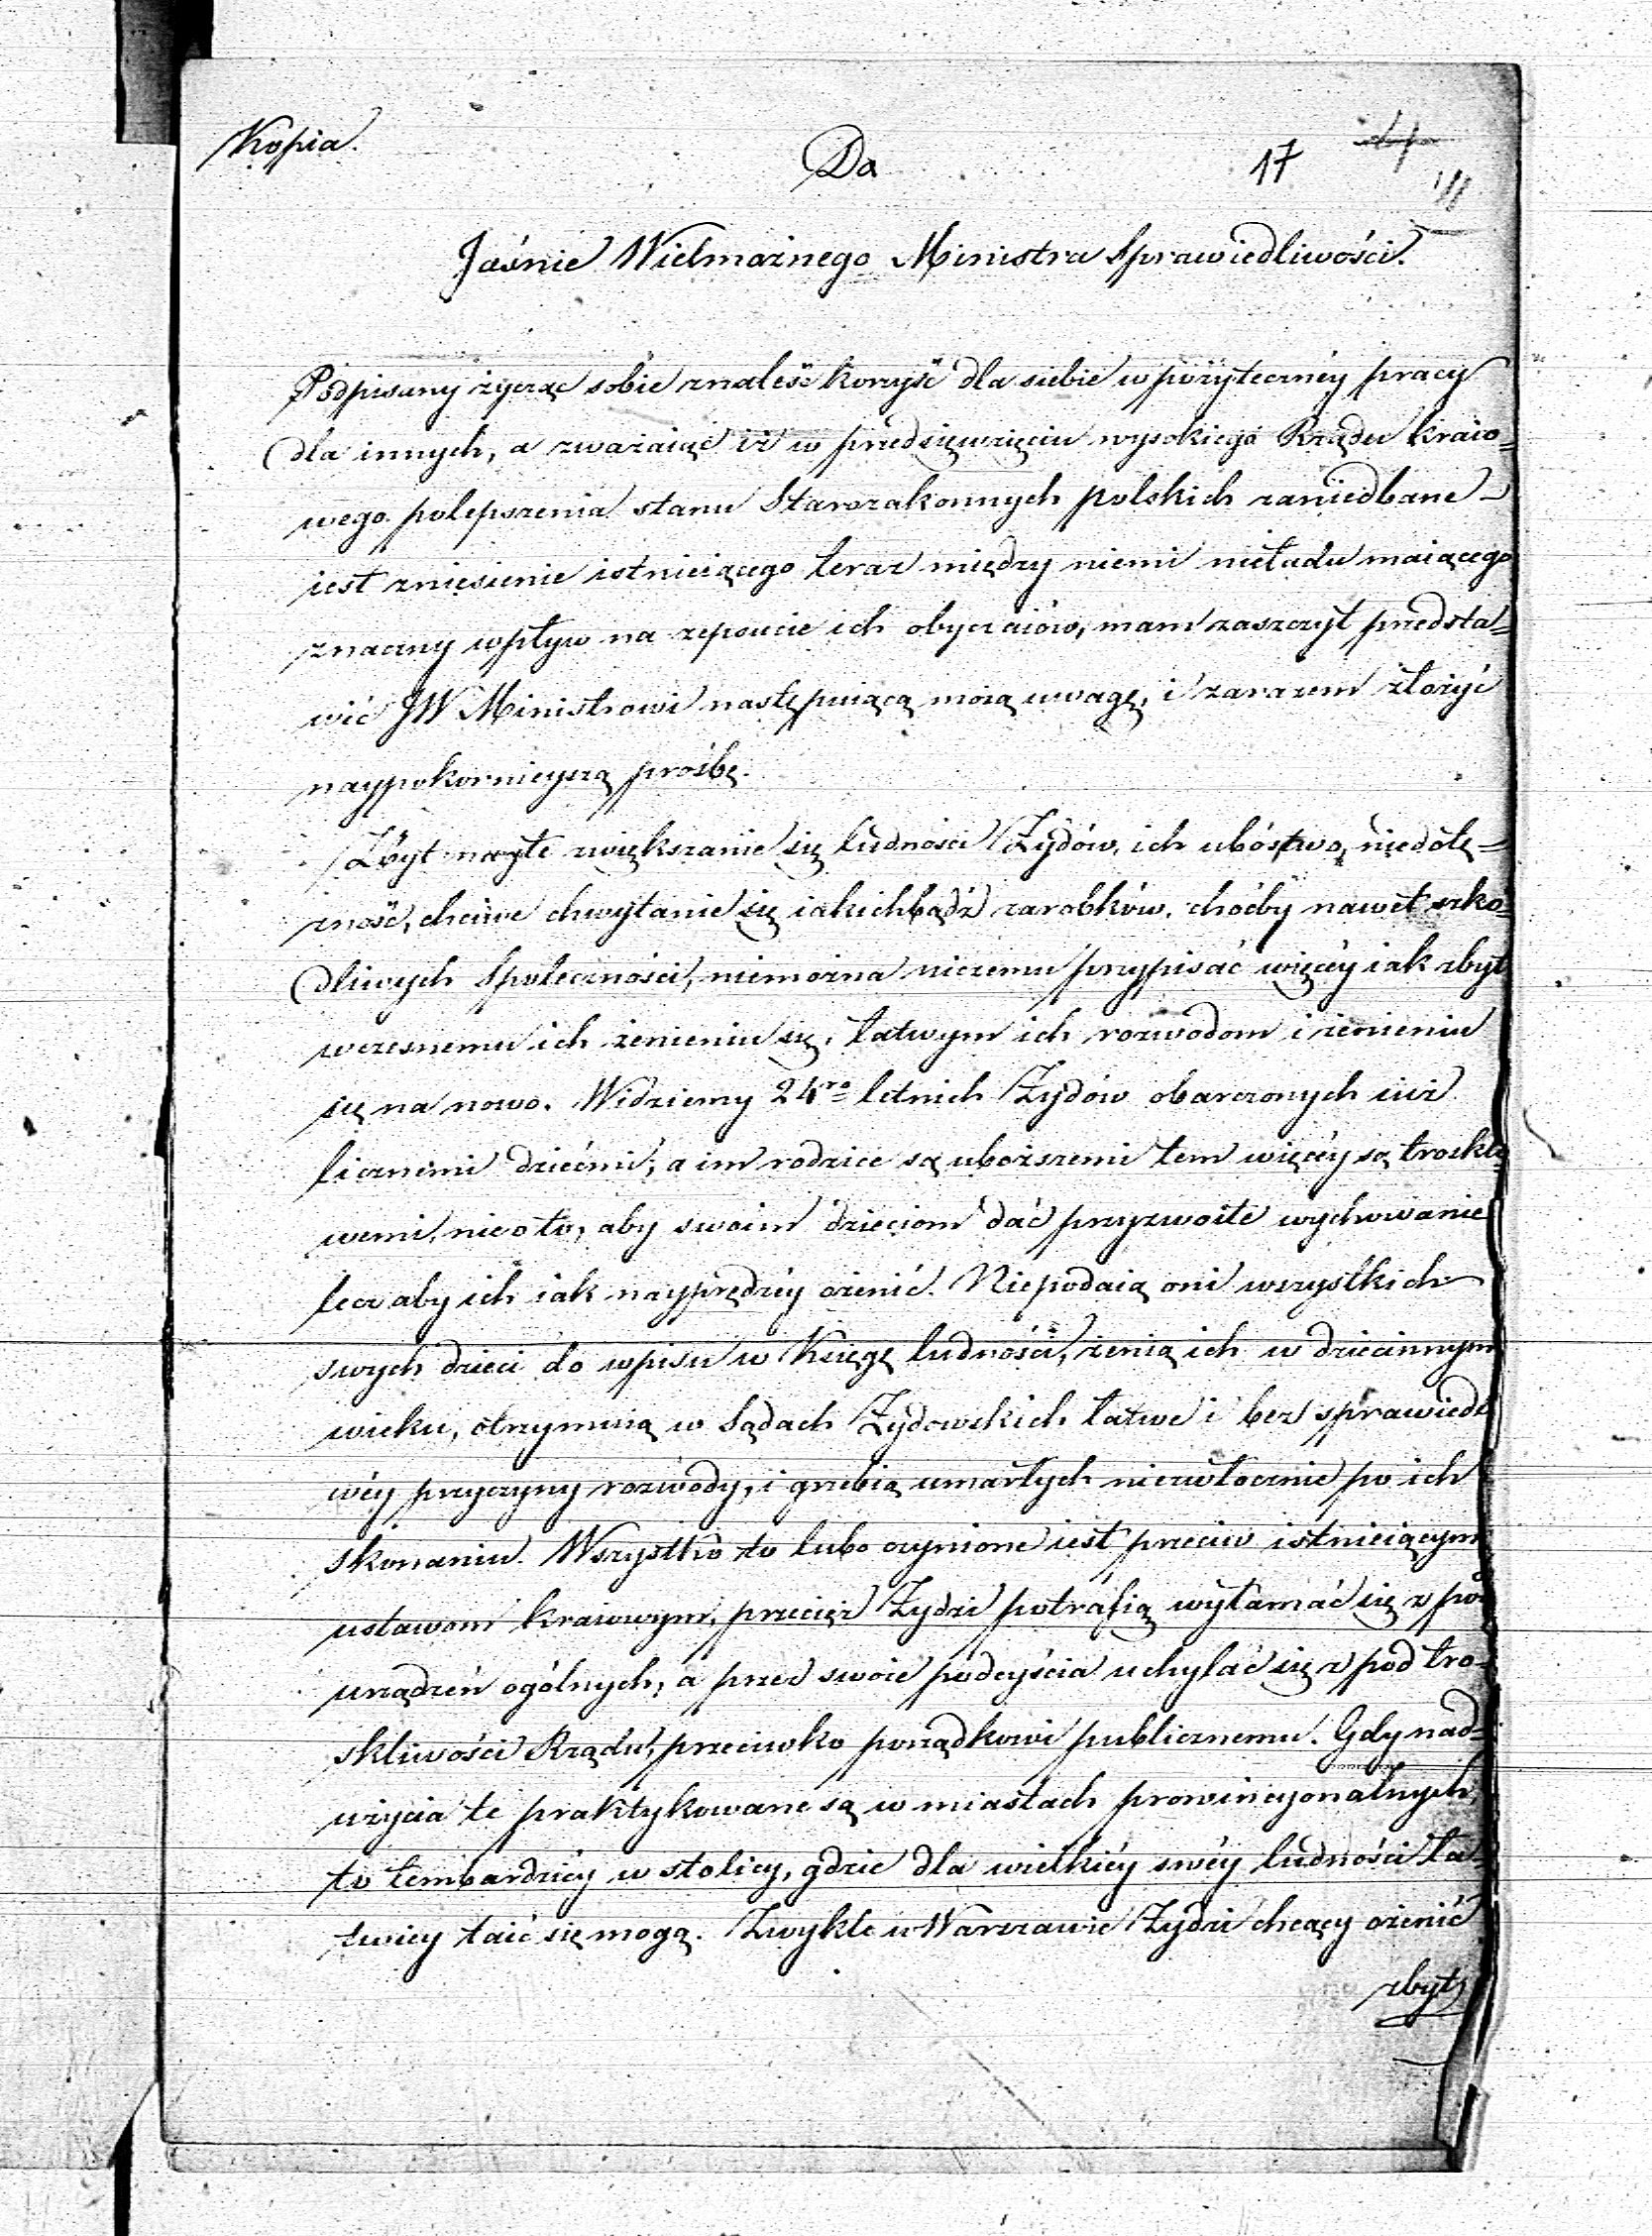 Kopia.
Do
17
Jaśnie Wielmożnego Ministra Sprawiedliwości.
Podpisany życząc sobie znaleść korzyść dla siebie w pożyteczney pracy
dla innych, a zważaiąc iż w przedsięwzięciu wysokiego Rządu kraio=
wego polepszenia stanu Starozakonnych polskich zaniedbane
iest zniesienie istnieiącego teraz między niemi nieładu maiącego
znaczny wpływ na zepsucie ich obyczaiów, mam zaszczyt przedsta=
wić JW Ministrowi następuiącą moią uwagę, i zarazem złożyć
naypokornieyszą prośbę.
Zbyt nagłe zwiększanie się ludności Żydów, ich ubóstwo, niedołę=
żność, chciwe chwytanie się iakichbądź zarobków, choćby nawet szko=
dliwych Społeczności, niemożna niczemu przypisać więcéy iak zbyt
wczesnemu ich żenieniu się, łatwym ich rozwodom i żenieniu
się na nowo. Widziemy 24ro letnich Żydów obarczonych iuż
licznemi dziećmi; a im rodzice są uboższemi tem więcéy są troskli
wemi, nie o to, aby swoim dzieciom dać przyzwoite wychowanie
lecz aby ich iak nayprędzéy ożenić. Niepodaią oni wszystkich
swych dzieci do wpisu w Księgę ludności, żenią ich w dziecinnym
wieku, otrzymuią w Sądach Żydowskich łatwe i bez sprawiedli
wéy przyczyny rozwody, i grzebią umarłych niezwłocznie po ich
skonaniu. Wszystko to lubo czynione iest przeciw istnieiącym
ustawom kraiowym, przecięż Żydzi potrafią wyłamać się z pod
urządzeń ogólnych, a przez swoie podeyścia uchylać się z pod tro=
skliwości Rządu, przeciwko porządkowi publicznemu. Gdy nad=
użycia te praktykowane są w miastach prowincyonalnych,
to tembardziéy w stolicy, gdzie dla wielkiéy swéy ludności ła=
twiey taić się mogą. Zwykle w Warszawie Żydzi chcący ożenić
zbyt